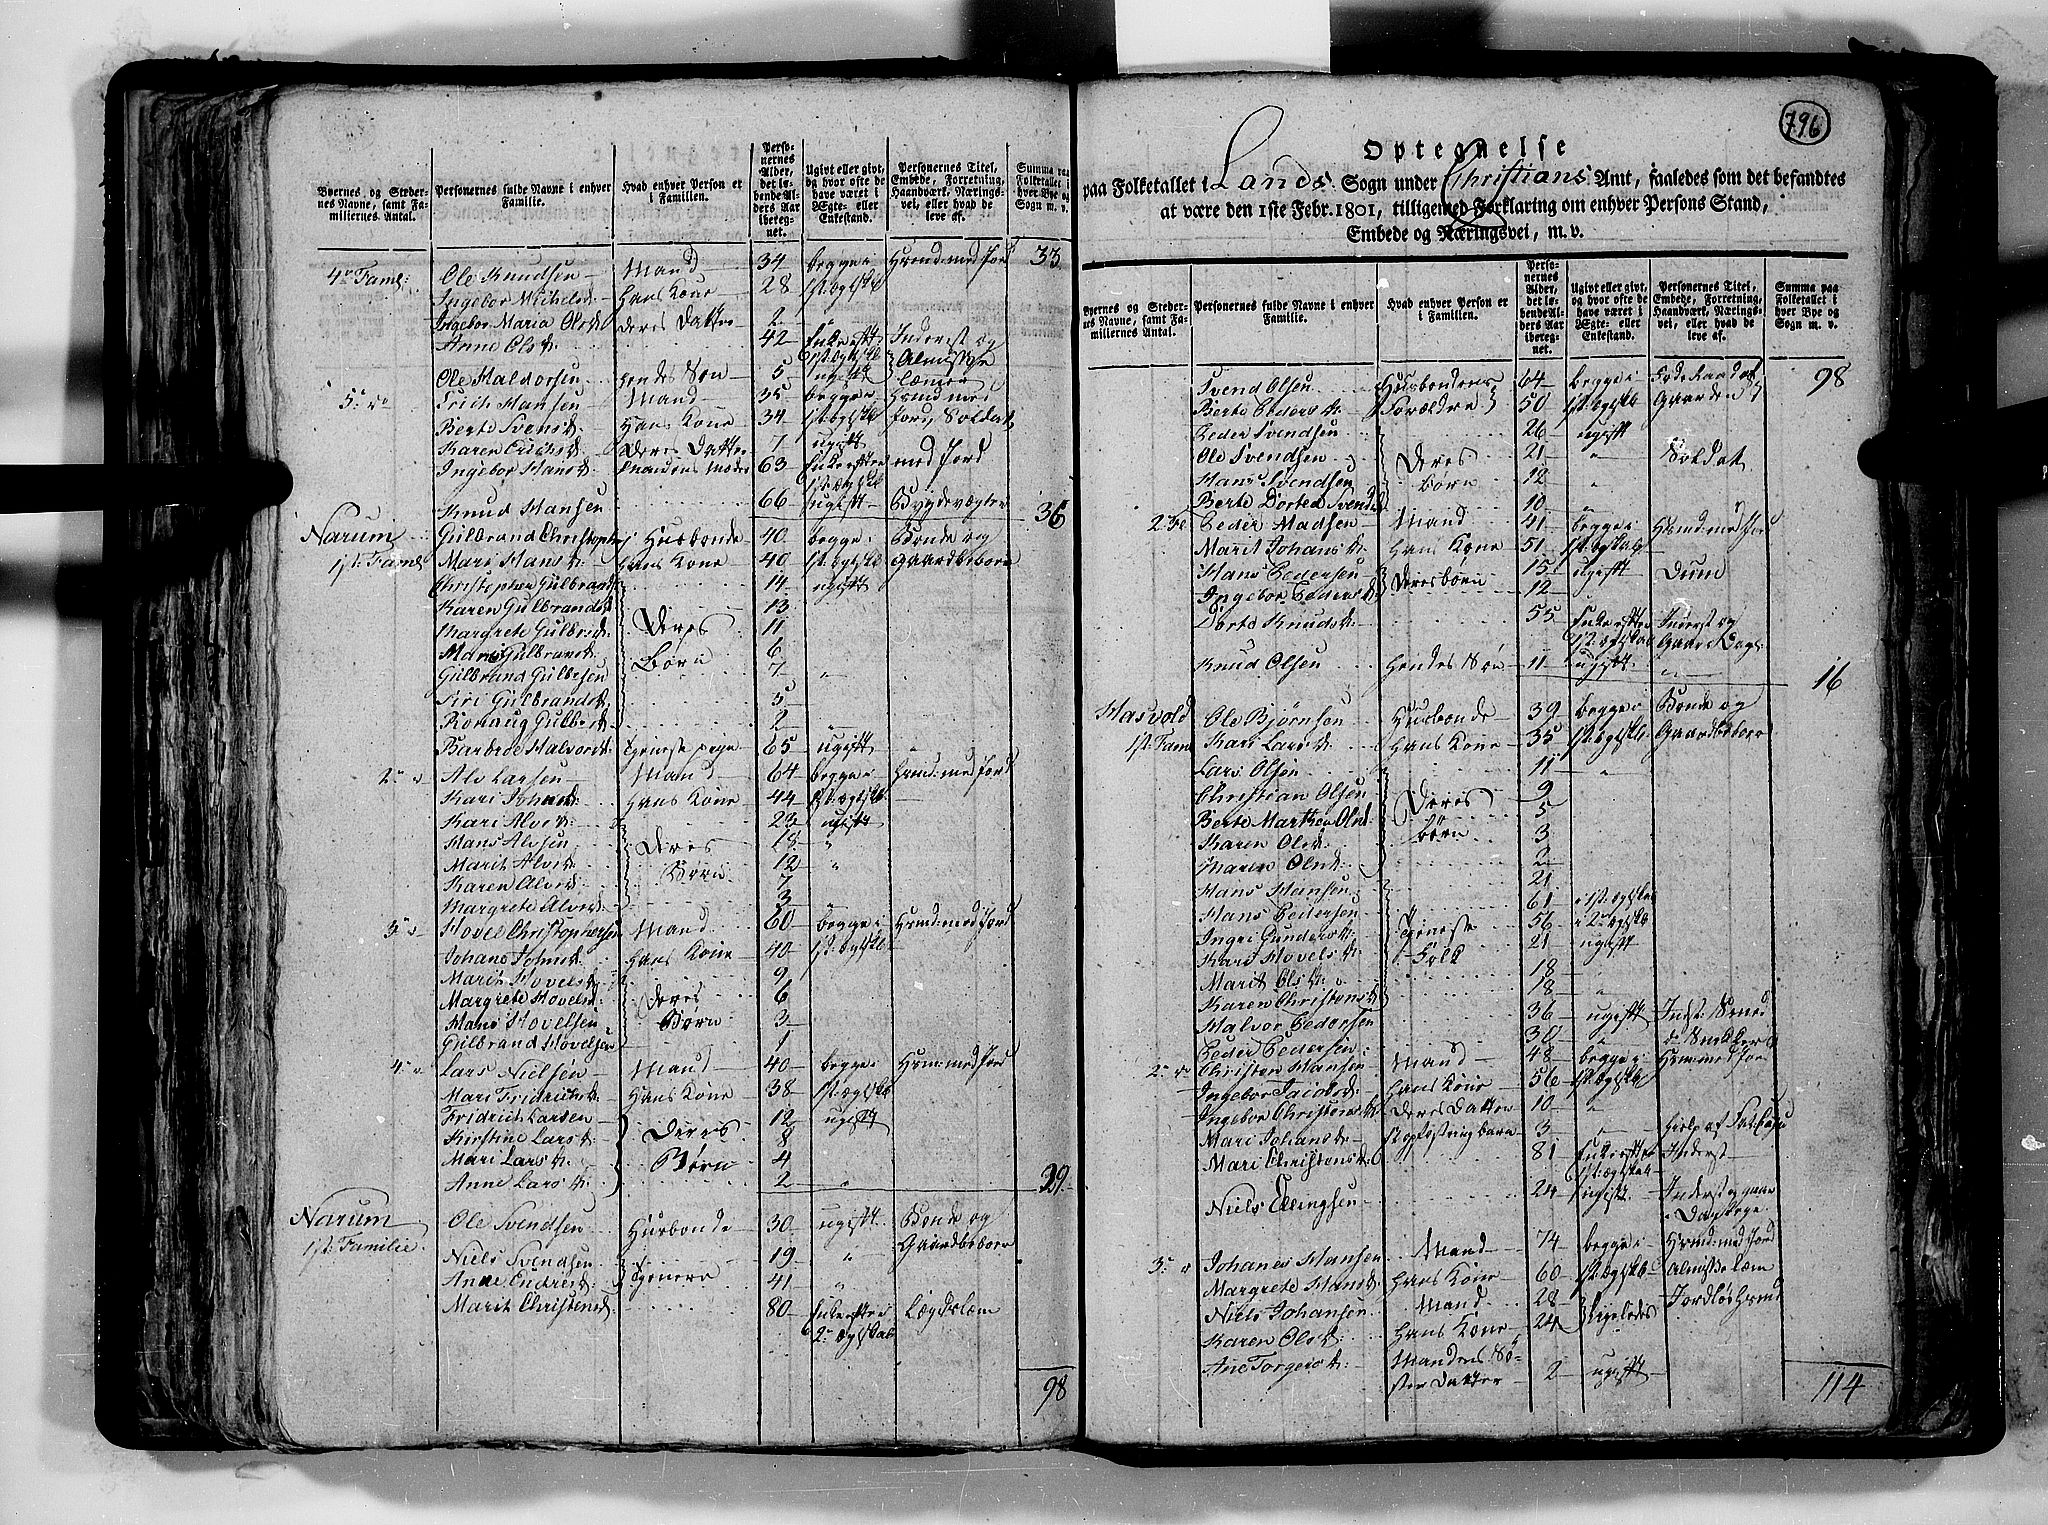 Byernes og Steder-
nes Navne, samt Fa-
miliernes Antal.
Personernes fulde Navne i enhver
Familie.
Hvad enhver Person er
i Familien.
Perso-
nernes
Alder,
det lø-
bende Al-
ders Aar
ibereg-
net.
Ugivt eller givt,
og hvor ofte de
have været i
Ægte- eller
Enkestand.
Personernes Titel,
Embede, Forretning,
Haandværk, Nærings-
vei, eller hvad de
leve af.
Summa paa
Folketallet i
hver Bye og
Sogn m. v.
33
4de Faml: Ole Knudsen Mand 34 begge i Huusmd: med Jord
Ingebor Michelsd: hans Kone 28 1st: ægtskb
Ingebor Maria Olsd: deres Datter 2 "
Anne Olsd: 42 Enke eft: 1st: ægtskb Inderst og
Ole Haldorsen hendes Søn 5 ugift
5te do Erich Hansen Mand 35 begge i Huusmd med
Berte Svensd: Hans Kone 34 1st: ægtskb Jord, Soldat
Karen Erichsd: Deres Datter 7 ugift
Ingebor Hansd: Mandens Moder 63 Enke efter 1st: ægtskb med Jord
Knud Hansen 66 ugift Bygdevægter 36
Narum Gulbrand Christoph: Husbonde 40 begge i Bonde og
1st: Faml Mari Hansd: hans Kone 40 1st: ægtskb Gaardbeboer
Christopher Gulbrands: 14 ugift
Karen Gulbrandsd 13
Margrete Gulbrsd: Deres 11
Gulbrandsd: Børn 6
Gulbrand Gulbrsen 7 "
Siri Gulbrandsd: 5
Ronnaug Gulbrsd: 2 "
Barbroe Halvorsd: Tjeneste pige 65 ugift "
2de " Alv Larsen Mand 64 begge i Huusmd: med Jord
Kari Johnsd: Hans Kone 44 1st: ægtskb
Kari Alvsd: 23 ugift
Hans Alvsen Deres 18 "
Marit Alvsd: Børn 12 "
Karen Alvsd: 7
Margrete Alvsd: 3 "
3de " Hovel Christophersen Mand 60 begge i Huusmd: med Jord
Johans Hans Kone 40 1st: ægtskb
Marit Hovelsd: 9
Margrete Hovelsd: Deres 6
Hans Hovelsen Børn 3
Gulbrand Hovelsen 1
4de " Lars Nielsen Mand 40 begge i Huusm: med Jord
Mari Fridrichsd: Hans Kone 38 1st: ægtskb
Fridrich Larsen 12 ugift
Kirstine Larsd: Deres 8
Mari Larsd: Børn 4
Anne Larsd: 2 " 29
Narum Ole Svendsen Husbonde 30 ugift Bonde og
1st: Familie Gaardbeboer
Niels Svendsen 19 "
Anne Endresd: Tjenere 41 "
Marit Christensd: 80 Enke efter 2de ægtskab Lægdslæm
98
796
Optegnelse
paa Folketallet i Lands Sogn under Christians Amt, saaledes som det befandtes
at være den 1ste Febr. 1801, tilligemed Forklaring om enhver Persons Stand,
Embede og Næringsvei, m. v.
Byernes og Steder-
nes Navne, samt Fa-
miliernes Antal.
Personernes fulde Navne i enhver
Familie.
Hvad enhver Person er
i Familien.
Perso-
nernes
Alder,
det lø-
bende Al-
ders Aar
ibereg-
net.
Ugivt eller givt,
og hvor ofte de
have været i
Ægte- eller
Enkestand.
Personernes Titel,
Embede, Forretning,
Haandværk, Nærings-
vei, eller hvad de
leve af.
Summa paa
Folketallet i
hver Bye og
Sogn m. v.
98
Svend Olsen Husbondens 64 begge i Føderaad af
Berte Peders d: Forældre 50 1st: ægtskb Gaarden
Peder Svendsen 26 ugift
Ole Svendsen Deres 21 " Soldat
Hans Svendsen Børn 12 "
Berte Dortea Svendsd 10 "
2de Peder Madsen Mand 41 begge i Huusmd: med Jord
Marit Johansd: Hans Kone 51 1st: ægtskb
Hans Pedersen Deres børn 15 ugift Dum
Ingebor Pedersd: 12
Dorte Knudsd: 55 Enke efter 1st: ægtskab Inderst og
Knud Olsen Hendes Søn 11 ugift " 16
Hasvold Ole Bjørnsen Husbonde 39 begge i Bonde og
1st: Fam Kari Larsd: Hans Kone 35 1st: ægtskb Gaardbeboer
Lars Olsen 11 "
Christian Olsen Deres 9
Berte Marthea Olsd: børn 5
Karen Olsd: 3
Maren Olsd: 2
Hans Hansen 21
Hans Pedersen 61 i 1st: ægtskb
Ingri Gundersd: Tjeneste 56 i 2de ægtskb
Kari Hovelsd: Folk 21 ugift
Marit Olsd: 18 "
Karen Christensd 18 "
Halvor Pedersen 36 ugift Inderst: Smed
Peder Pedersen 30 "
2de do Christen Hansen Mand 48 begge i Huusm: med Jord
Ingebor Jacobsd: Hans Kone 56 1st: ægtskb
Ingebor Christensd: Deres Datter 10 "
Mari Johansd: Opfostringsbarn 3 " Hielp af
Mari Christensd: 81 Enke efter 1st: ægtskab Inderst
Niels Ellingsen 24 ugift Inderst og
3de " Johanes Hansen Mand 74 begge i Huusmd: med Jord
Margrete Hansd: Hans Kone 60 1st: ægtskb Almisselem
Niels Johansen Mand 28 Ligeledes Jordløs Huusmd
Karen Olsd: Hans Kone 24
Ane Torgersd: Mandens Sø-
ster Datter 2 ugift
114